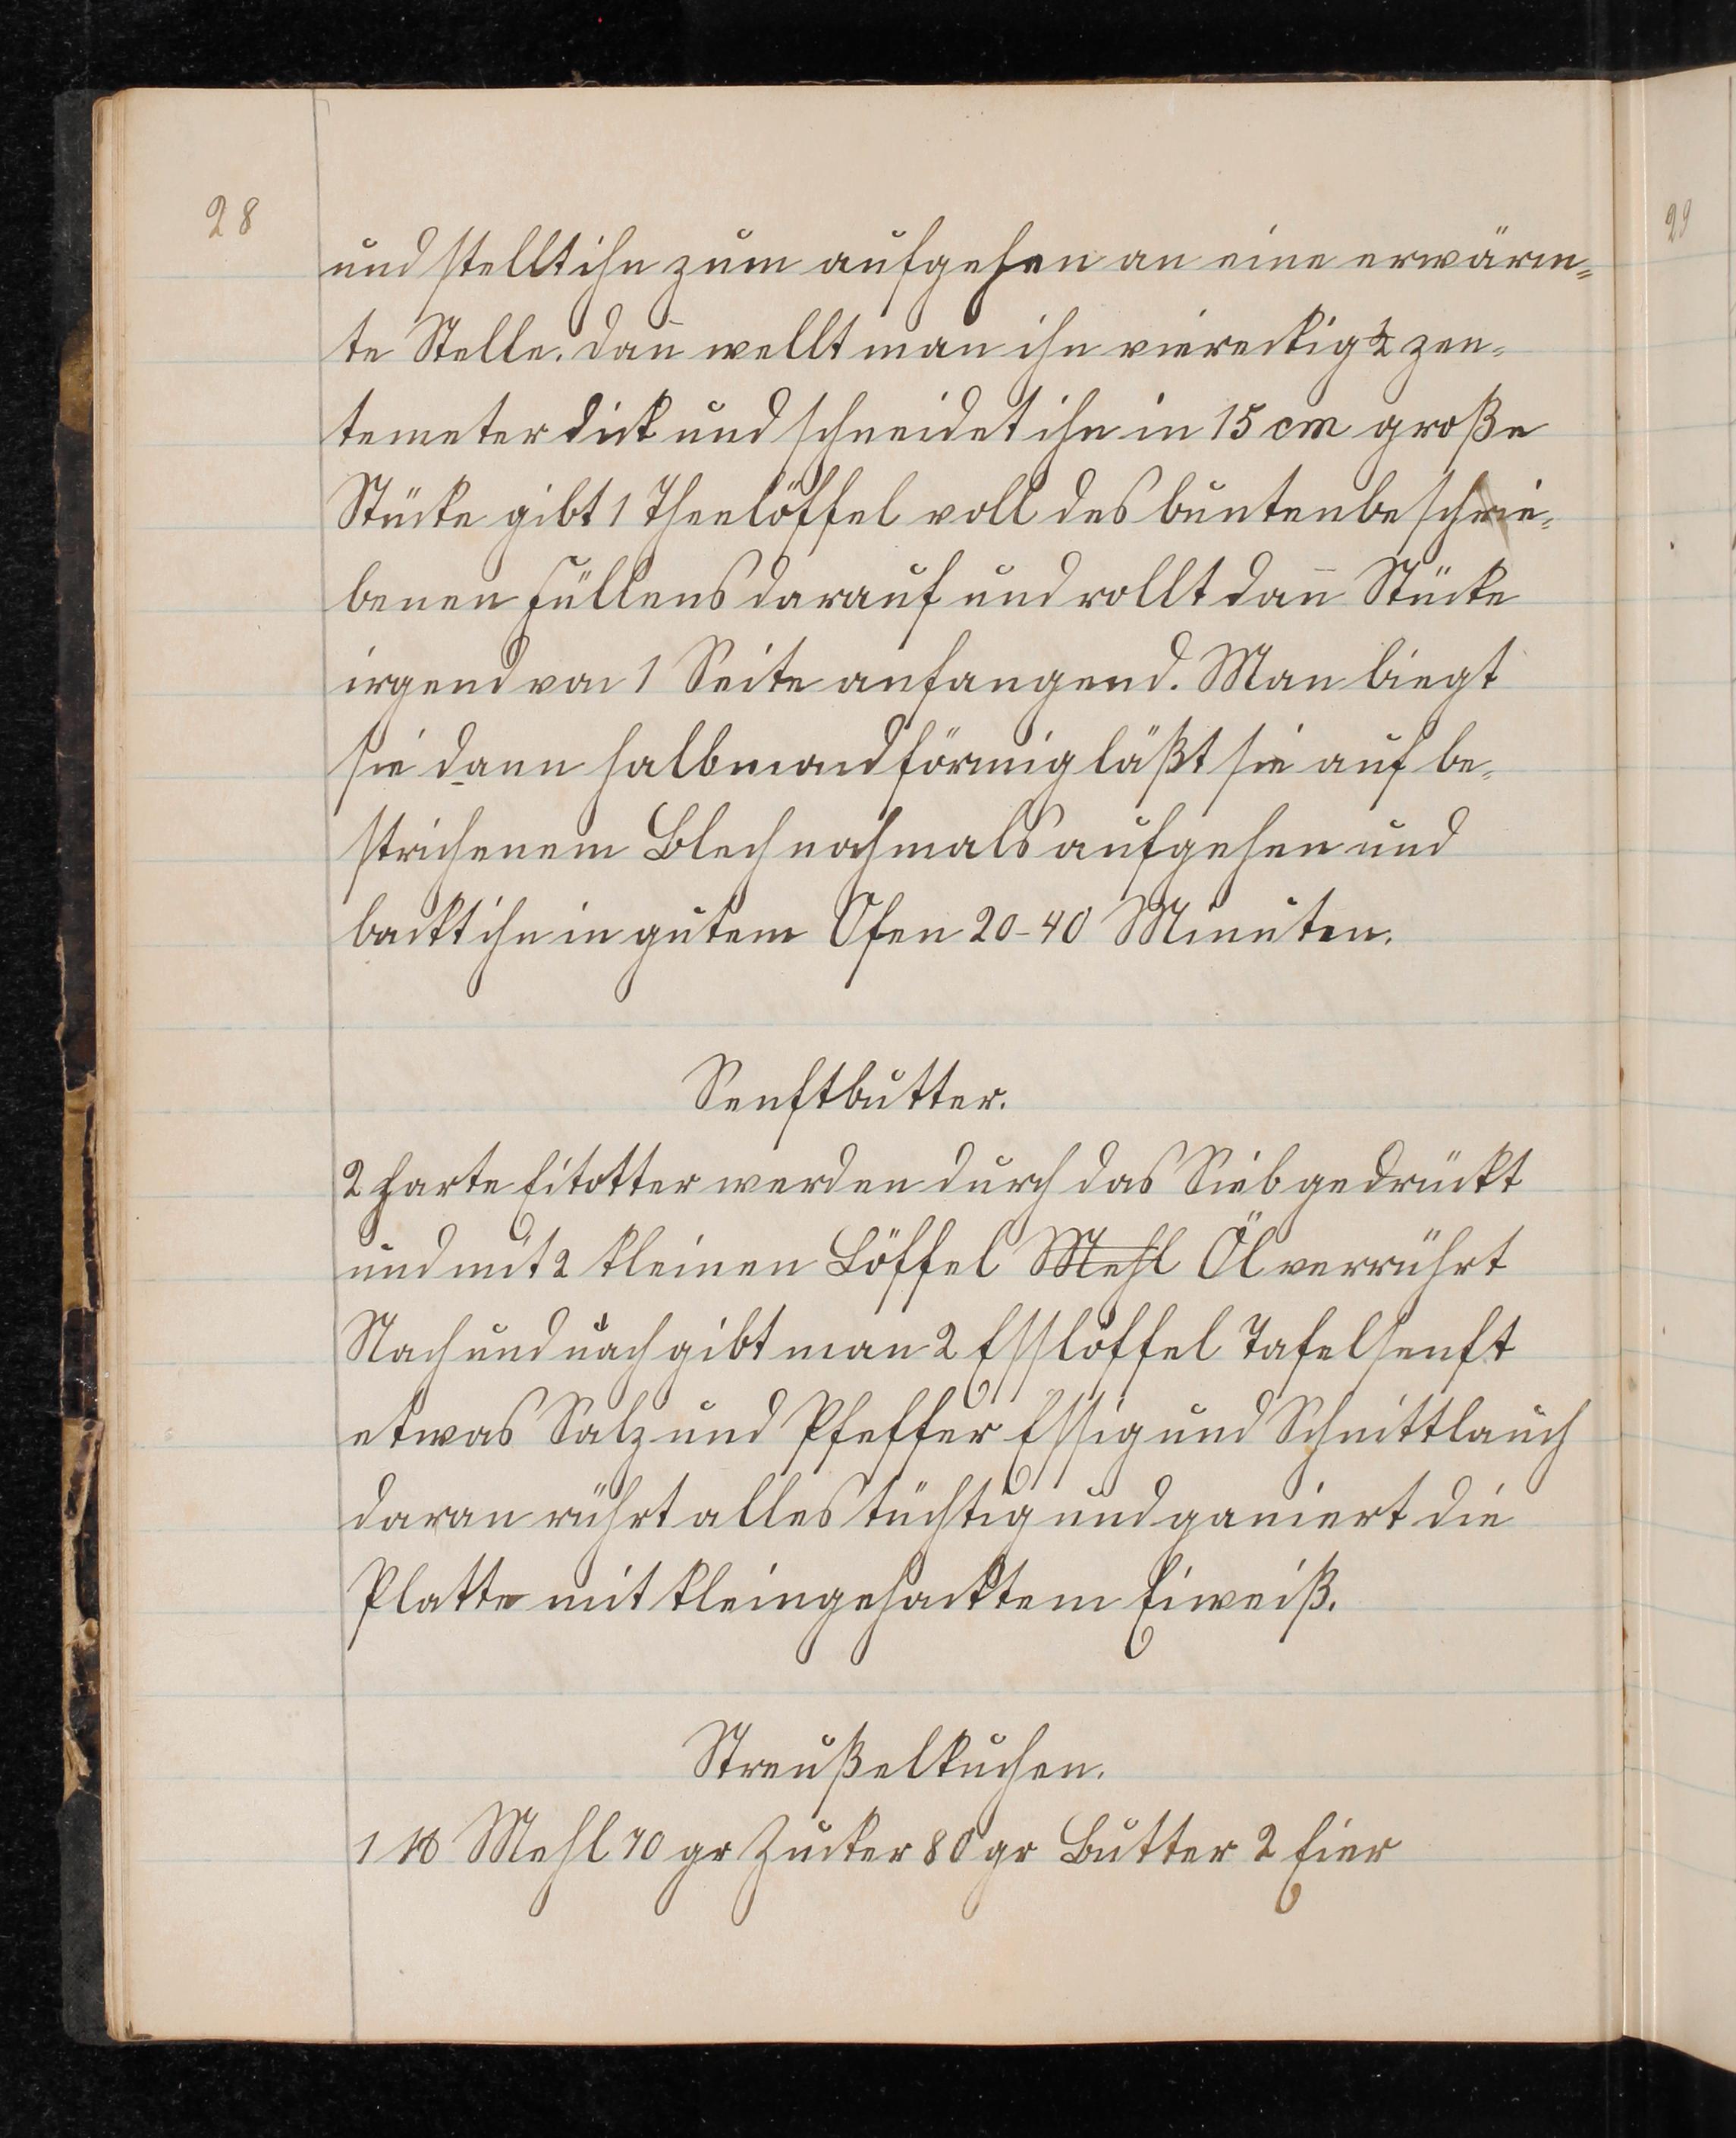 28
und stellt ihn zum aufgehen an eine erwärm=
te Stelle. dañ wellt man ihn viereckig ½ zen=
temeter dick und schneidet ihn in 15 cm große
Stücke gibt 1 Theelöffel voll des buntenbeschrie=
benen Füllens darauf und rollt dañ Stücke
irgend von 1 Seite anfangend. Man biegt
sie dann halbmondförmig läßt sie auf be=
strichenem Blech nochmals aufgehen und
backt ihn in gutem Ofen 20-40 Minuten.
Senftbutter.
2 harte Eitotter werden durch das Sieb gedrückt
und mit 2 kleinen Löffel Mehl Öl verrührt
Nach und nach gibt man 2 Esslöffel Tafelsenft
etwas Salz und Pfeffer Essig und Schnittlauch
daran rührt alles tüchtig und ganiert die
Platte mit kleingehacktem Eiweiß.
Streußelkuchen.
1 ℔ Mehl 70 gr Zucker 80 gr Butter 2 Eier
29